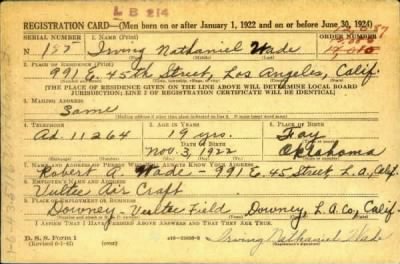 L B 214
REGISTRATION CARD—(Men born on or after January 1, 1922 and on or before June 30, 1924)
SERIAL NUMBER 1. NAME (Print) ORDER NUMBER
N 195 Irving Nathaniel Wade
2. PLACE OF RESIDENCE (Print)
991 E. 45th Street, Los Angeles, Calif.
(THE PLACE OF RESIDENCE GIVEN ON THE LINE ABOVE WILL DETERMINE LOCAL BOARD
JURISDICTION; LINE 2 OF REGISTRATION CERTIFICATE WILL BE IDENTICAL)
3. MAILING ADDRESS
Same
4. TELEPHONE 5. AGE IN YEARS 6. PLACE OF BIRTH
Ad. 11264 19 yrs. Fay
DATE OF BIRTH
Nov. 3, 1922 Oklahoma
7. NAME AND ADDRESS OF PERSON WHO WILL ALWAYS KNOW YOUR ADDRESS
Robert A. Wade - 991 E. 45 Street L.A., Calif.
8. EMPLOYER'S NAME AND ADDRESS
Vultee Air Craft
9. PLACE OF EMPLOYMENT OR BUSINESS
Downey - Vultee Field Downey, L.A. Co., Calif.
I AFFIRM THAT I HAVE VERIFIED ABOVE ANSWERS AND THAT THEY ARE TRUE.
D. S. S. Form 1
(Revised 6-1-42) Irving Nathaniel Wade